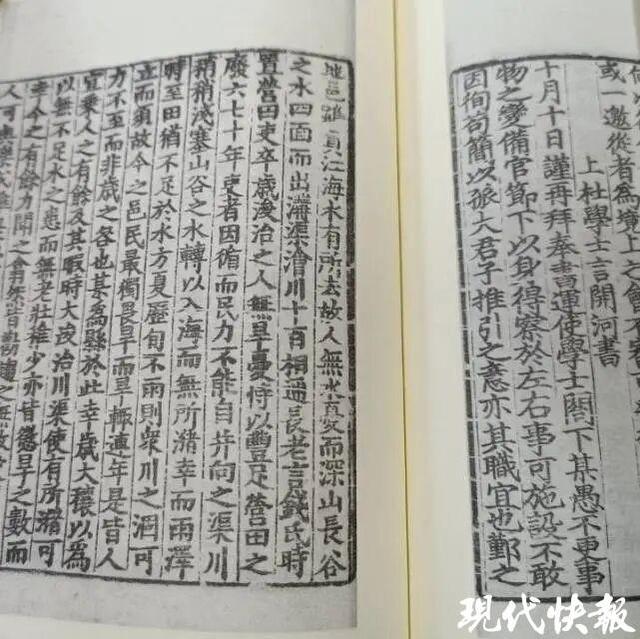 或一邀從者為境上之
上杜學士言開河書
十月十日謹再拜奉書運使學士閣下某愚不更事
物之變備官節下以身得察於左右事可施設不敢
因徇苟簡以孤大君子推引之意亦其職宜也鄞之
地邑雖負江海水有所去故人無水憂而深山長谷
之水四面而出溝渠澮川十百相通長老言錢氏時
置營田吏卒歲浚治之人無旱憂恃以豐足營田之
廢六七十年吏者因循而民力不能自并向之渠川
稍稍淺塞山谷之水轉以入海而無所潴幸而雨澤
時至田猶不足於水方夏歷旬不雨則衆川之涸可
立而須故今之邑民最獨畏旱而旱輒連年是皆人
力不至而非歲之咎也某為縣於此幸歲大穰以為
宜乘人之有餘及其暇時大浚治川渠使有所潴可
以無不足水之患而無老壯稚少亦皆懲旱之數而
幸今之有餘力聞之翕然皆勸趨之無
人可與樂成
現代快報